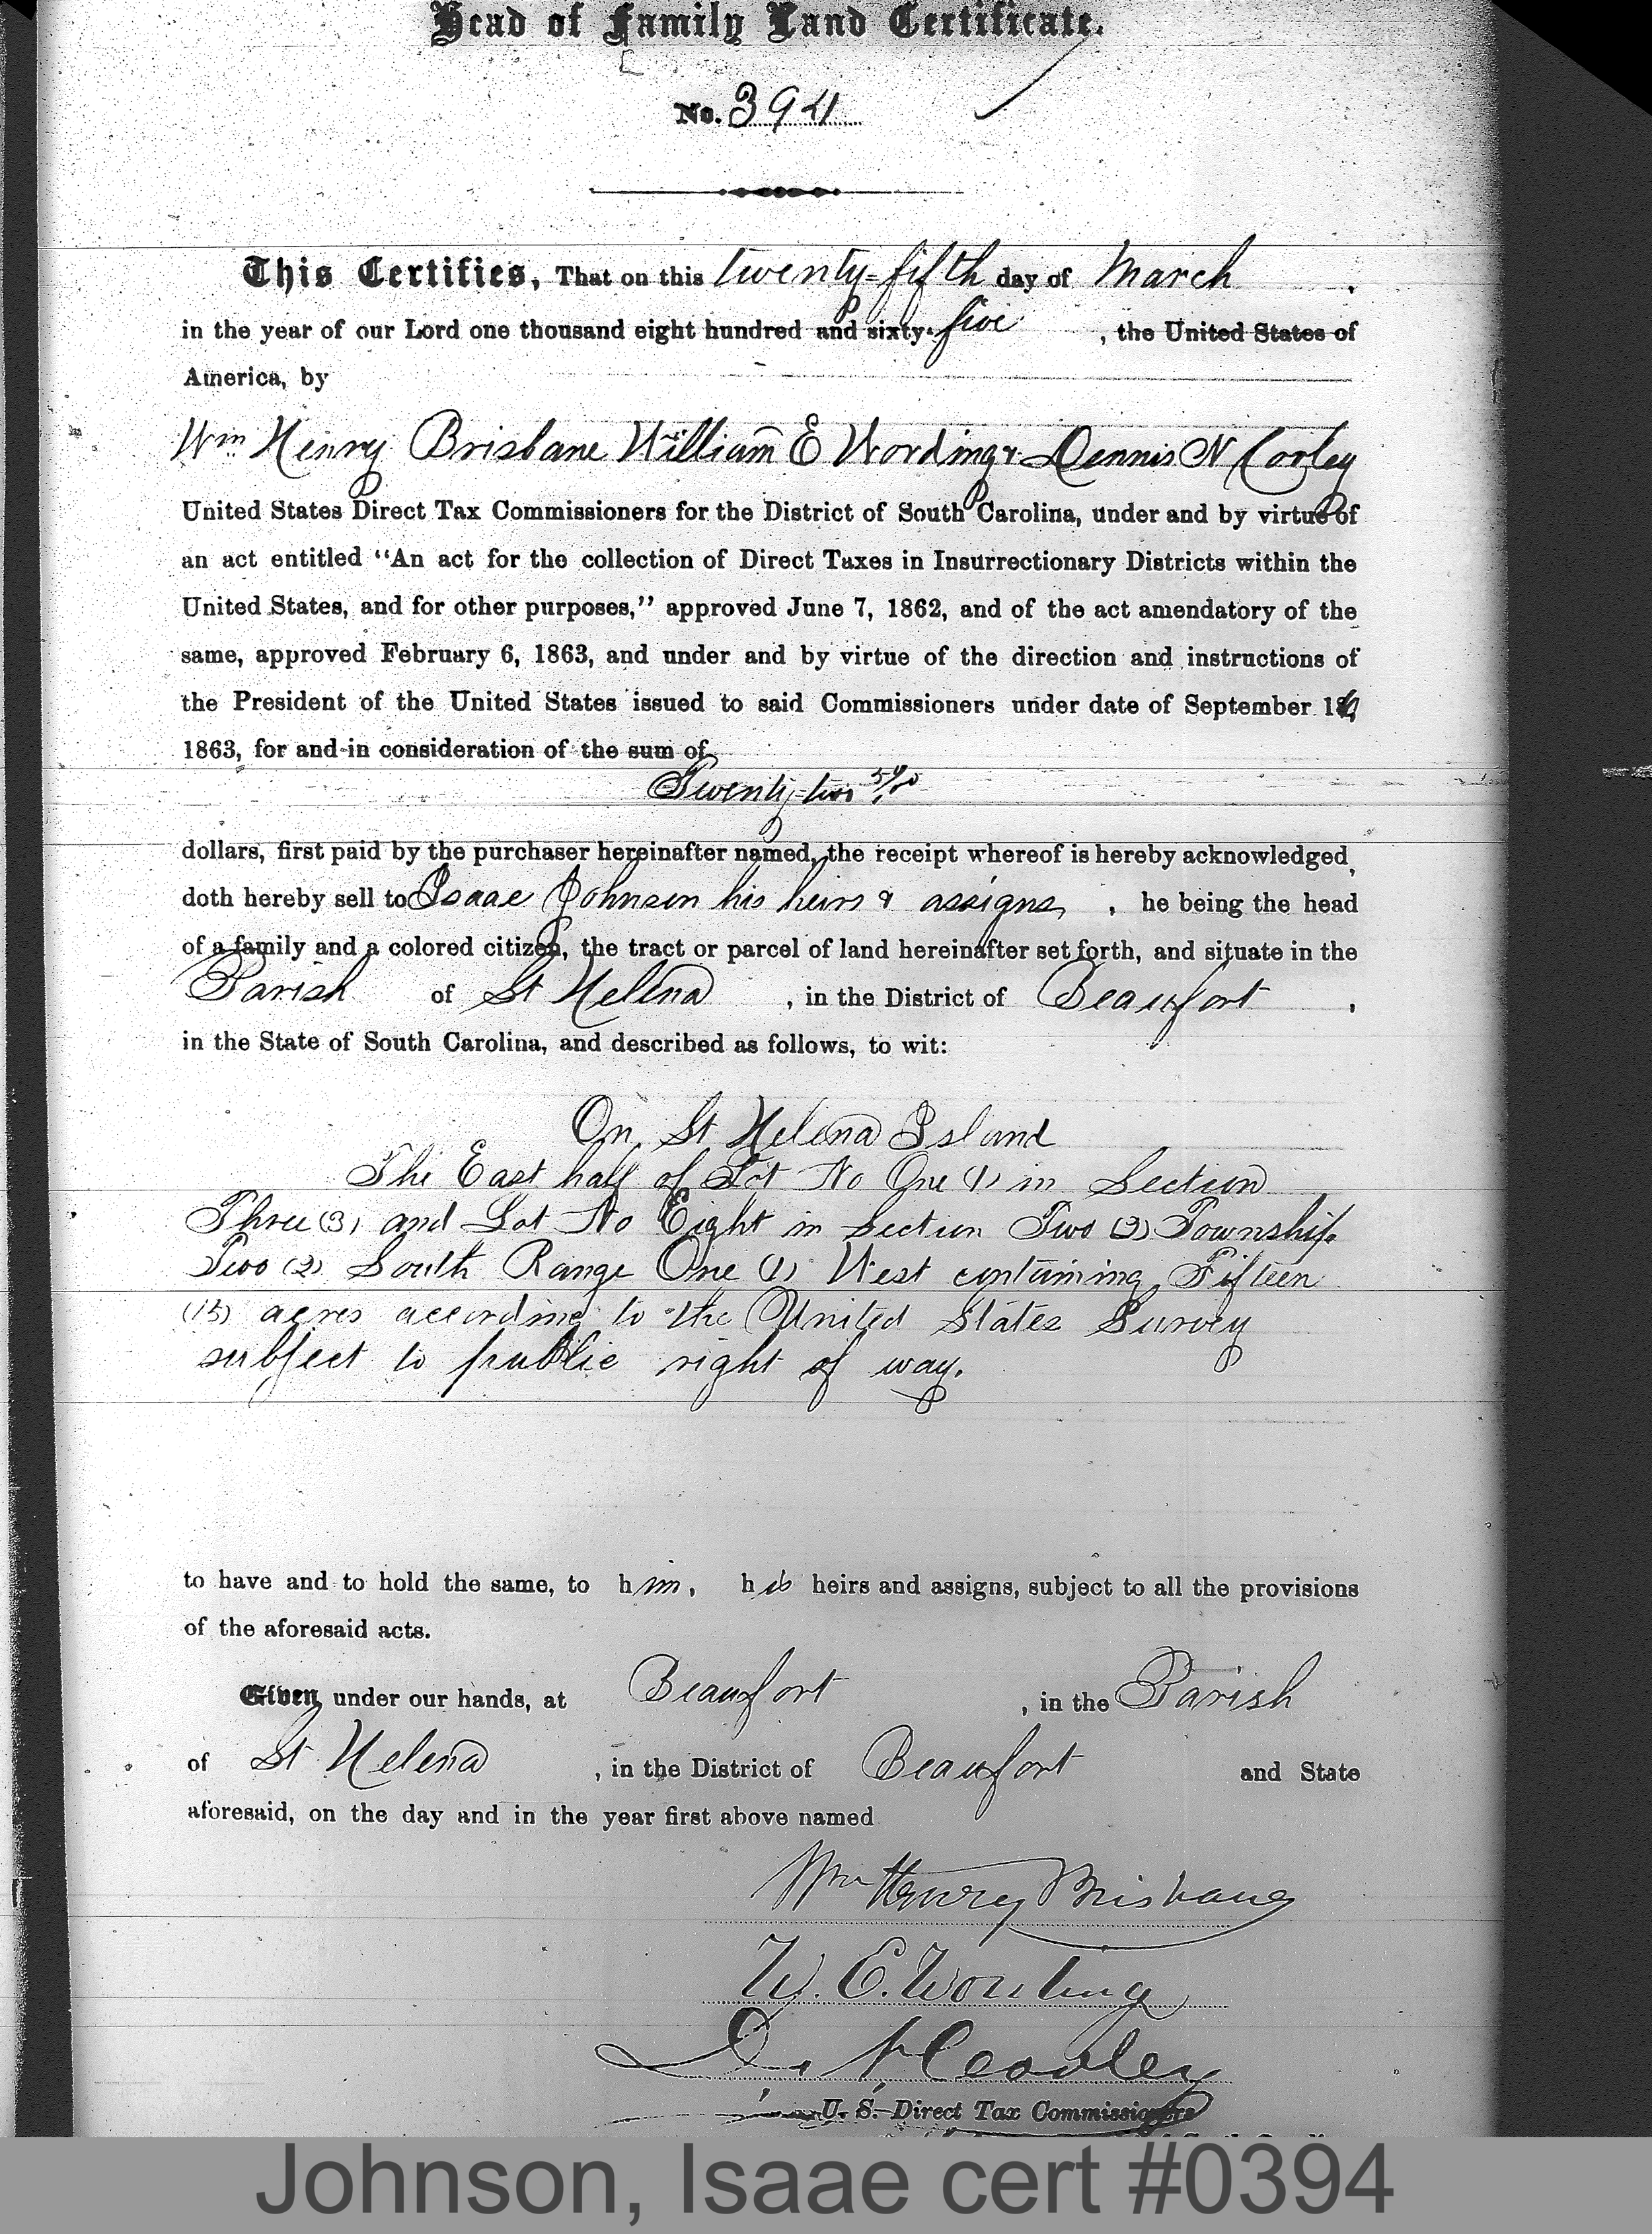 Head of Family Land Certificate.
No. 394
This Certifies, That on this twenty-fifth day of March
in the year of our Lord one thousand eight hundred and sixty-five, the United States of
America, by
Wm Henry Brisbane William E Wording & Dennis N Corley
United States Direct Tax Commissioners for the District of South Carolina, under and by virtue of
an act entitled "An act for the collection of Direct Taxes in Insurrectionary Districts within the
United States, and for other purposes," approved June 7, 1862, and of the act amendatory of the
same, approved February 6, 1863, and under and by virtue of the direction and instructions of
the President of the United States issued to said Commissioners under date of September
1863, for and in consideration of the sum of
Twenty-two
dollars, first paid by the purchaser hereinafter named, the receipt whereof is hereby acknowledged,
doth hereby sell to Isaae Johnson his heirs & assigns, he being the head
of a family and a colored citizen, the tract or parcel of land hereinafter set forth, and situate in the
Parish of St Helena, in the District of Beaufort,
in the State of South Carolina, and described as follows, to wit:
On St Helena Island
The East half of Lot No One (1) in Section
Three (3) and Lot No Eight in Section Two Township
Two (2) South Range One (1) West containing Fifteen
(15) acres according to the United States Survey
subject to public right of way.
to have and to hold the same, to him, his heirs and assigns, subject to all the provisions
of the aforesaid acts.
Given under our hands, at Beaufort, in the Parish
of St Helena, in the District of Beaufort and State
aforesaid, on the day and in the year first above named
Wm Henry Brisbane
W. E. Wording
D. N. Cooley
U. S. Direct Tax Commissioners
Johnson, Isaae cert #0394